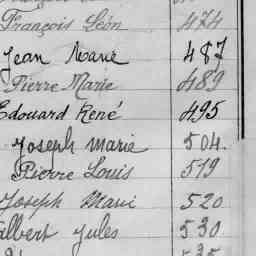 François Léon 474
Jean Marie 487
Pierre Marie 489
Edouard René 495
Joseph Marie 504.
Pierre Louis 519
Joseph Marie 520
Albert Jules 530
535